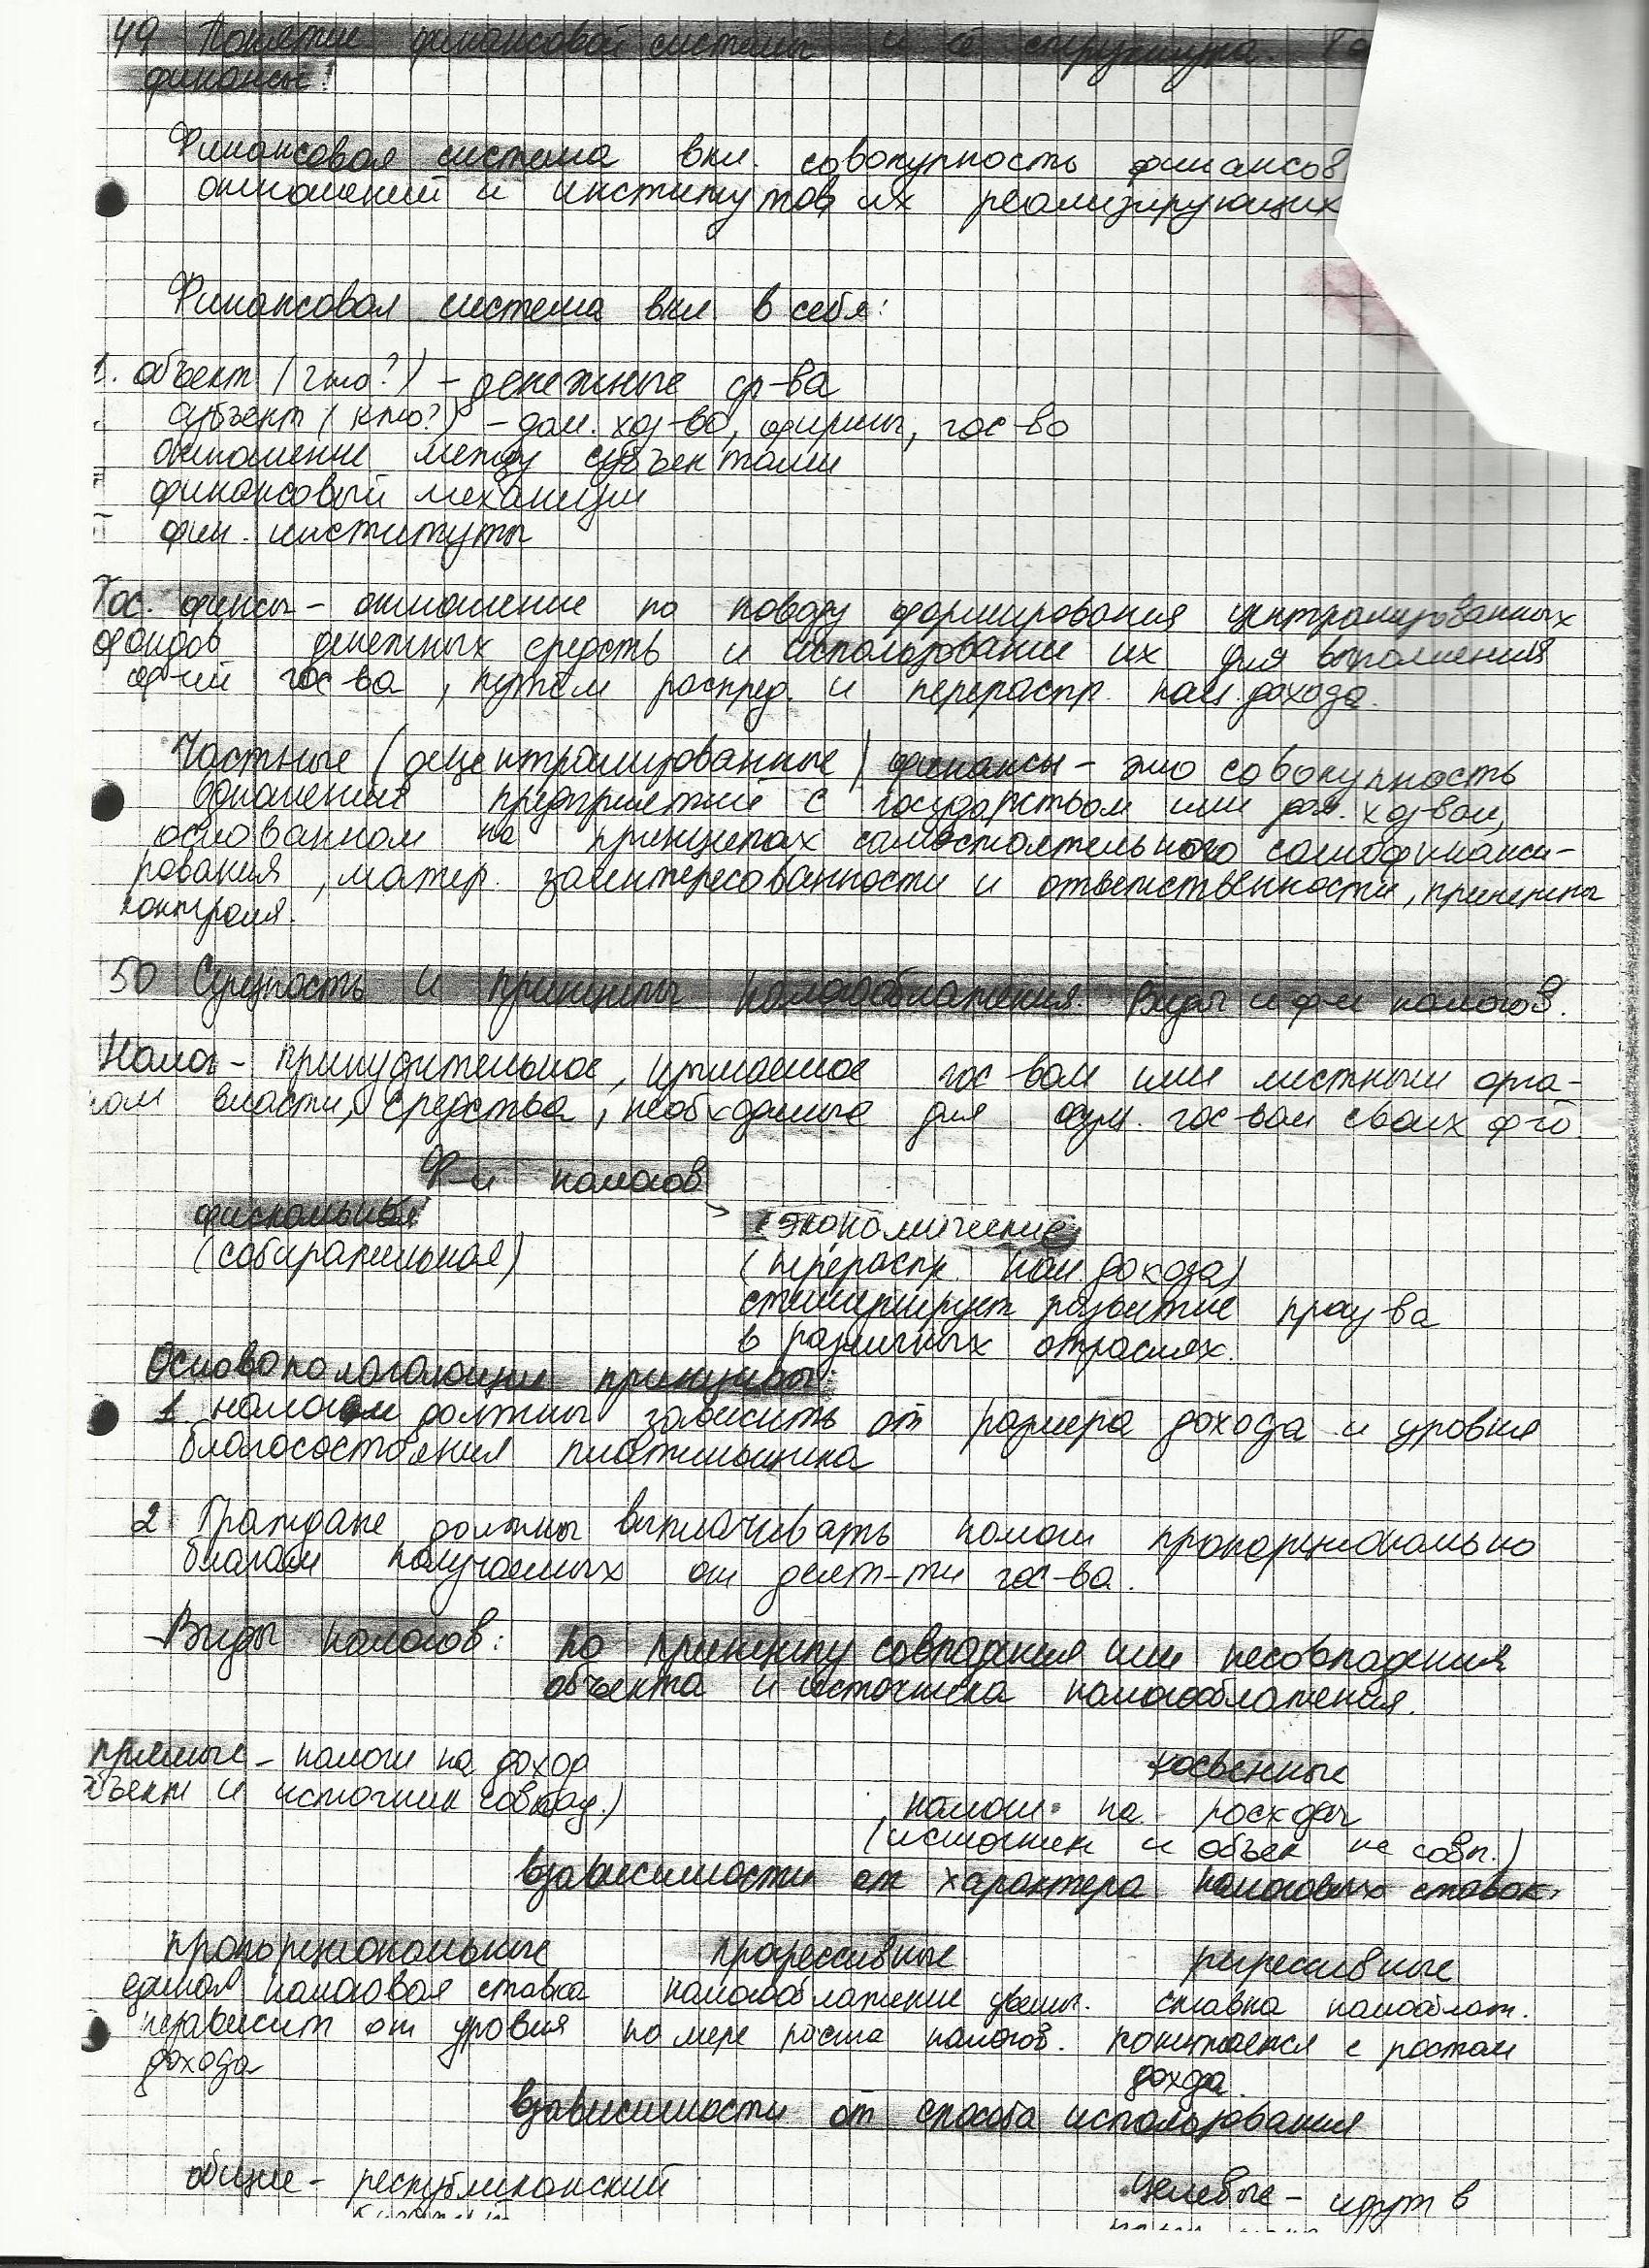 49 Понятие финансовой системы и её структура. Го
финансы!
Финансовая система вкл. совокупность финансов
отношений и институтов их реализирующих
Финансовая система вкл в себя:
1. объект (что?) - денежные ср-ва
субъект (кто?) - дом. хоз-во, фирмы, гос-во
отношение между субъектами
финансовый механизм
фин. институты
Гос. финсы - отношение по поводу формирования централизованных
фондов денежных средств и использование их для выполнения
ф-ий гос-ва, путём распред. и перераспр. нац. дохода.
Частные (децентрализированные) финансы - это совокупность
отношения предприятий с государством или дом. хоз-вом,
основанном на принципах самостоятельного самофинанси-
рования, матер. заинтересованности и ответственности, принципы
контроля.
50 Сущность и принципы налогообложения. Виды и ф-и налогов.
Налог - принудительное, изымаемое гос-вом или местными орга-
ном власти, средства, необходимые для осущ. гос-вом своих ф-й.
Ф-и налогов
фискальная
экономические
(собирательная)
(перераспр. нац. дохода)
стимулирует развитие произ-ва
в различных отраслях.
Основополагающие принципы:
1 налоги должны зависить от размера дохода и уровня
благосостояния плательщика
2. Граждане должны выплачивать налоги пропорционально
благам получаемых от деят-ти гос-ва.
Виды налогов: по принципу совпадения или несовпадения
объекта и источника налогообложения.
прямые - налоги на доход
косвенные
объект и источник совпад.)
налоги на расходы
(источник и объек не совп.)
взависимости от характера налоговых ставок.
пропорциональные прогрессивные регрессивные
единая налоговая ставка налогообложение увелич. ставка налооблож.
независит от уровня по мере роста налогов. понижается с ростом
дохода
дохода.
взависимости от способа использования
общие - республиканский целевые - идут в